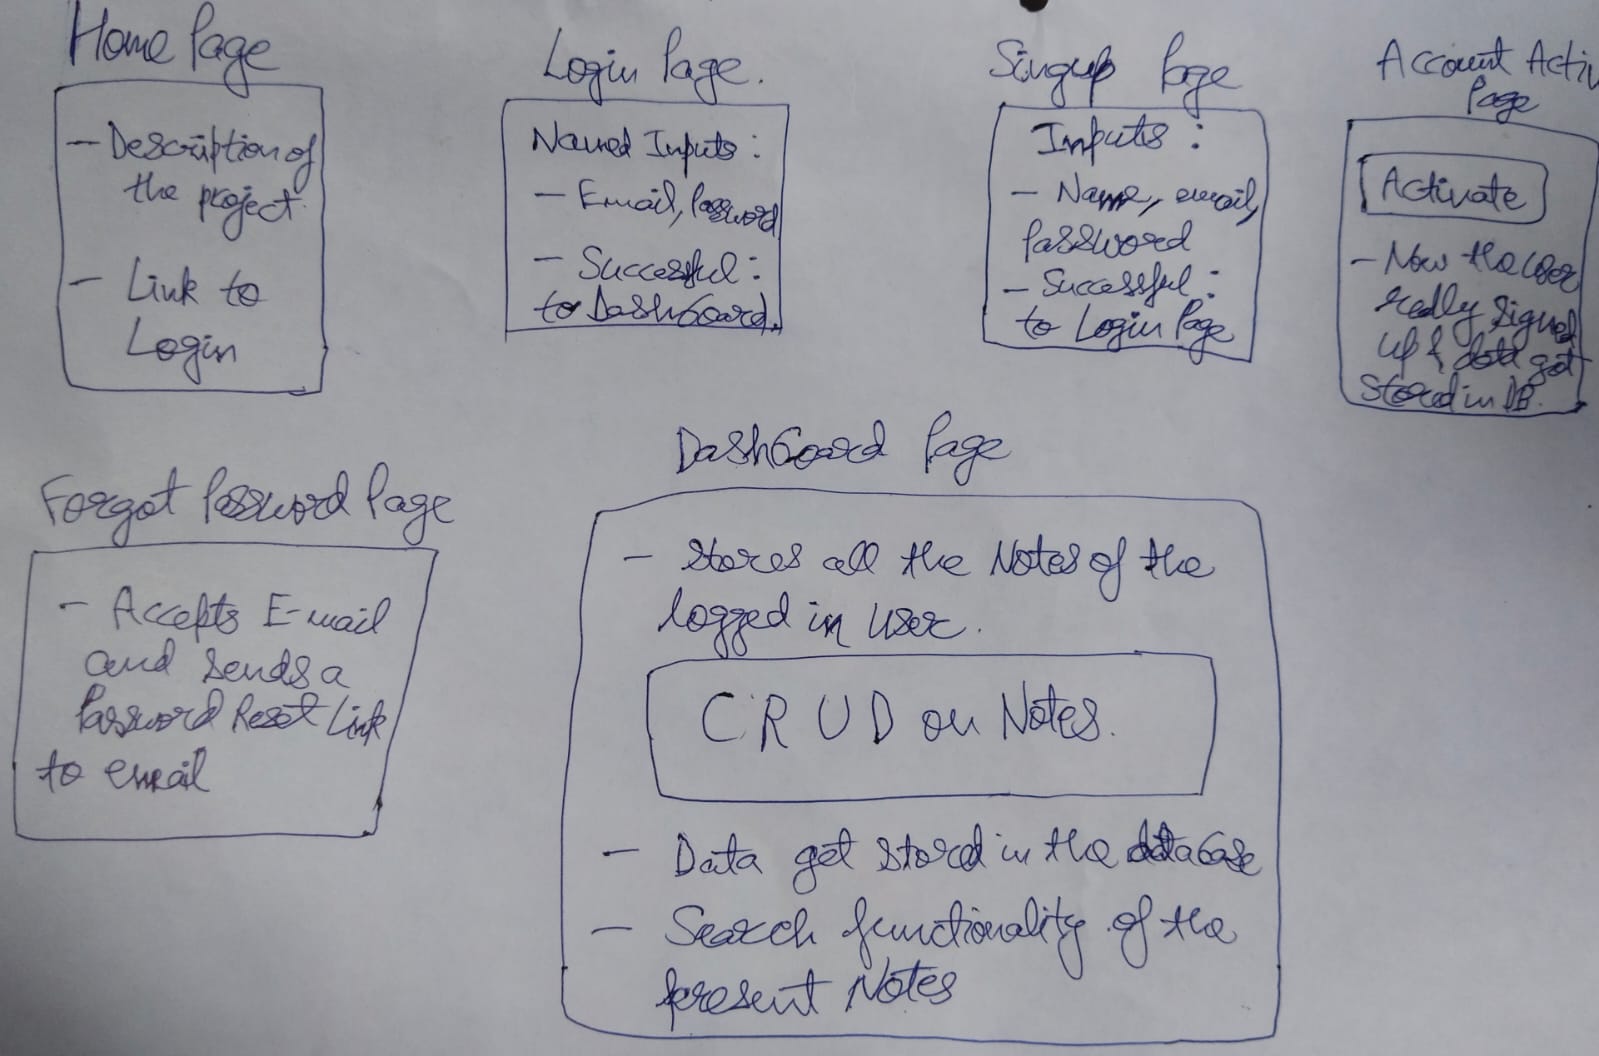 Home Page
- Description of
the project
- Link to
Login
Login Page.
Named Inputs:
- Email, Password
- Successful:
to Dashboard.
Singup Page
Inputs:
- Name, email,
password
- Successful:
to Login Page
Account Activ
Page
Activate
- Now the user
really signed
up & data got
stored in DB.
Forgot Password Page
- Accepts E-mail
and sends a
Password Reset Link
to email
Dashboard Page
- Stores all the Notes of the
logged in user.
CRUD on Notes.
- Data get stored in the database
- Search functionality of the
present Notes